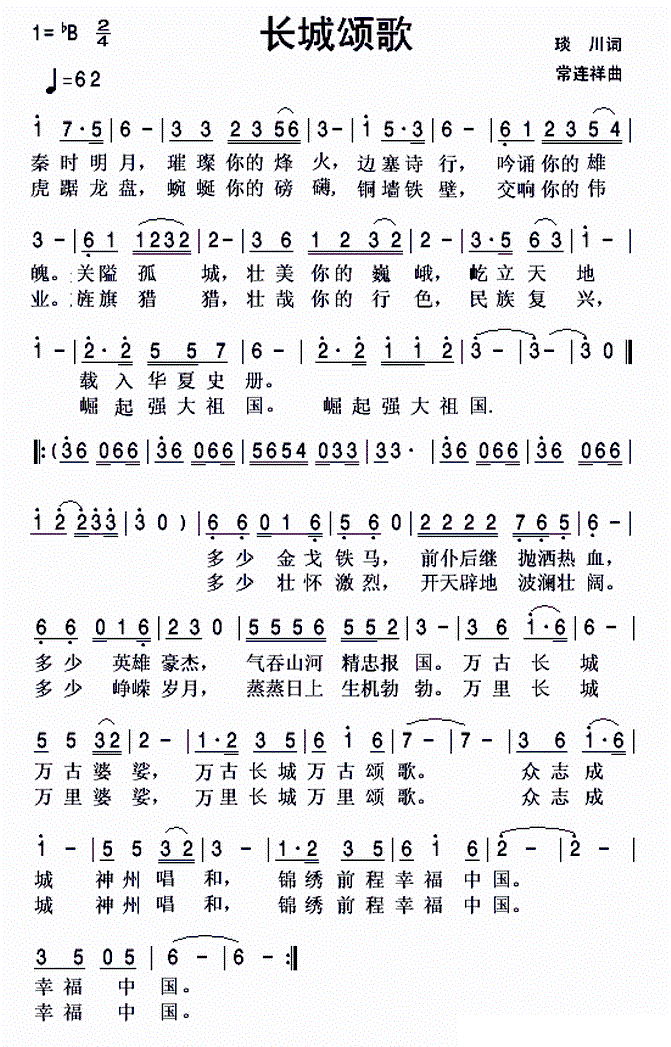 1=♭B 2/4
长城颂歌
琰 川词
♩=62
常连祥曲
1 7·5 | 6 - | 3 3 2 3 5 6 | 3 - | 1 5·3 | 6 - | 6 1 2 3 5 4 |
秦时明月，璀璨你的烽火，边塞诗行，吟诵你的雄
虎踞龙盘，蜿蜒你的磅礴，铜墙铁壁，交响你的伟
3 - | 6 1 1232 | 2 - | 3 6 1 2 3 2 | 2 - | 3·5 6 3 | 1 - |
魄。关隘孤城，壮美你的巍峨，屹立天地
业。旌旗猎猎，壮哉你的行色，民族复兴，
1 - | 2·2 5 5 7 | 6 - | 2·2 1 1 2 | 3 - | 3 - | 3 0 ‖
载入华夏史册。
崛起强大祖国。崛起强大祖国.
‖: (36 066 | 36 066 | 5654 033 | 33· | 36 066 | 36 066 |
1 2 233 | 3 0 ) | 6 6 0 1 6 | 5 6 0 | 2 2 2 2 7 6 5 | 6 - |
多少金戈铁马，前仆后继抛洒热血，
多少壮怀激烈，开天辟地波澜壮阔。
6 6 0 1 6 | 2 3 0 | 5 5 5 6 5 5 2 | 3 - | 3 6 1·6 | 6 - |
多少英雄豪杰，气吞山河精忠报国。万古长城
多少峥嵘岁月，蒸蒸日上生机勃勃。万里长城
5 5 3 2 | 2 - | 1·2 3 5 | 6 1 6 | 7 - | 7 - | 3 6 1·6 |
万古婆娑，万古长城万古颂歌。众志成
万里婆娑，万里长城万里颂歌。众志成
1 - | 5 5 3 2 | 3 - | 1·2 3 5 | 6 1 6 | 2 - | 2 - |
城神州唱和，锦绣前程幸福中国。
城神州唱和，锦绣前程幸福中国。
3 5 0 5 | 6 - | 6 - :‖
幸福中国。
幸福中国。